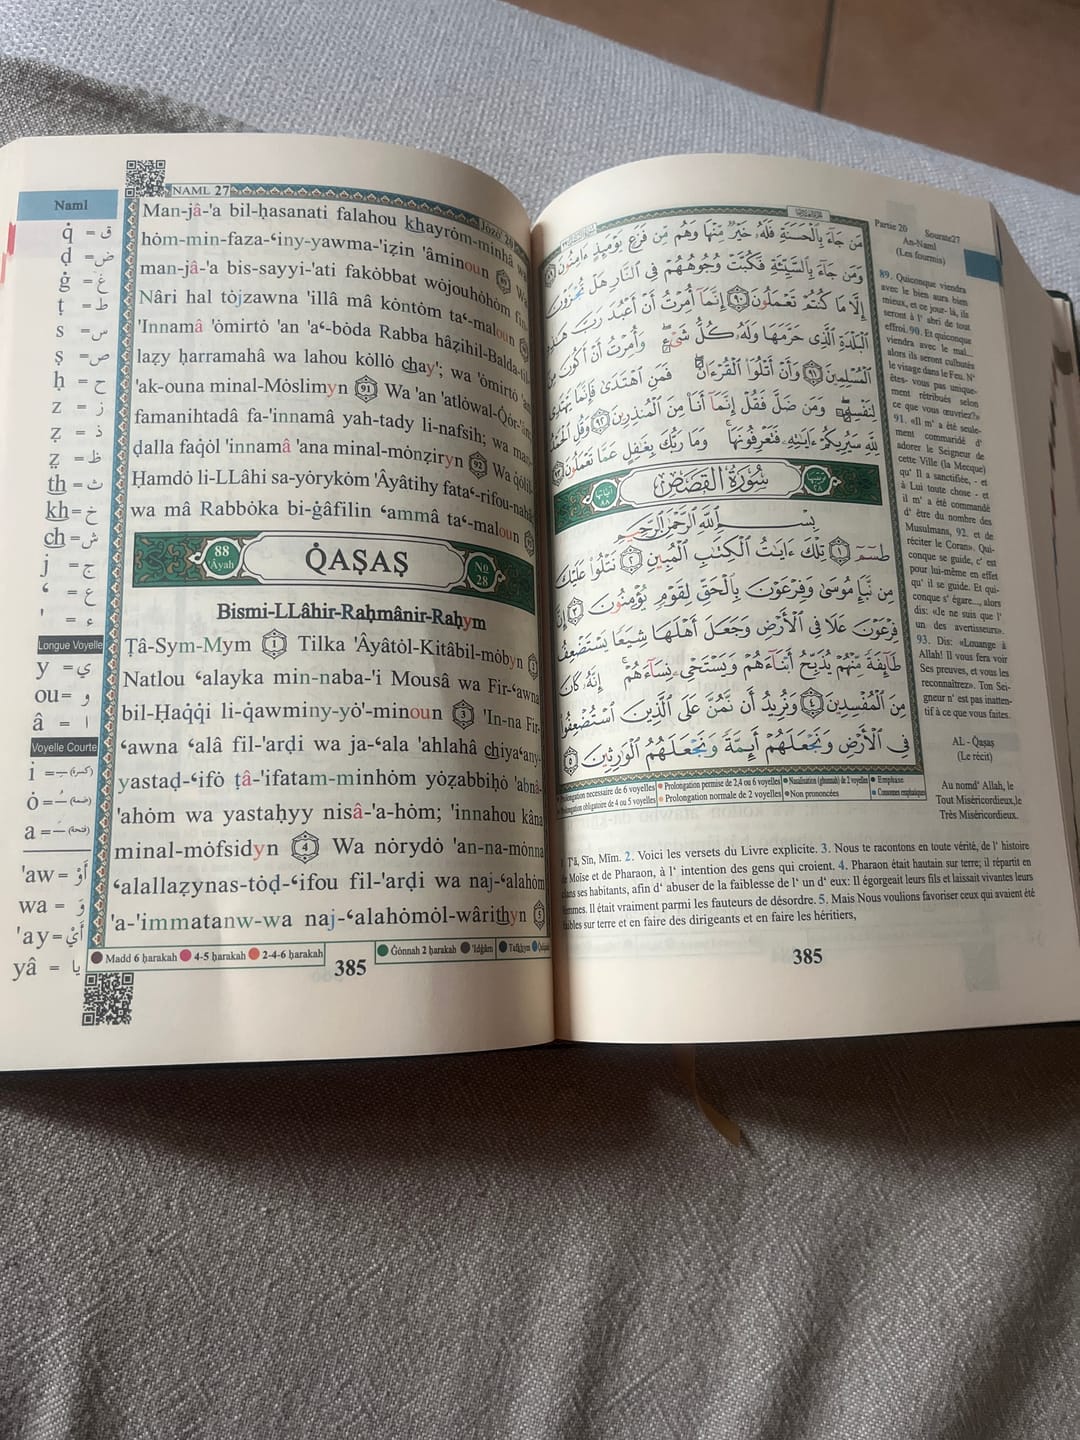 Naml
q̇ = ق
ḍ = ض
ġ = غ
ṭ = ط
s = س
ṣ = ص
ḥ = ح
z = ز
ẓ = ذ
ẓ = ظ
th = ث
kh = خ
ch = ش
j = ج
ʻ = ع
' = ء
Longue Voyelle
y = ي
ou = و
â = ا
Voyelle Courte
i = (كسرة)
ȯ = (ضمة)
a = (فتحة)
'aw = أَوْ
wa = وَ
'ay = أَيْ
yâ = يا
NAML 27
Jozo' 20
Man-jâ-'a bil-ḥasanati falahou khayrȯm-minhâ wa
hȯm-min-faza-ʻiny-yawma-'iẓin 'âminoun 89 Wa
man-jâ-'a bis-sayyi-'ati fakȯbbat wȯjouhȯhȯm fin-
Nâri hal tȯjzawna 'illâ mâ kȯntȯm taʻ-maloun
'Innamâ 'ȯmirtȯ 'an 'aʻ-bȯda Rabba hâẓihil-Balda-til-
laẓy ḥarramahâ wa lahou kȯllȯ chay'; wa 'ȯmirtȯ 'an
'ak-ouna minal-Mȯslimyn 91 Wa 'an 'atlȯwal-Qȯr-
famanihtadâ fa-'innamâ yah-tady li-nafsih; wa man-
ḍalla faq̇ȯl 'innamâ 'ana minal-mȯnẓiryn 92 Wa q̇ȯlil-
Ḥamdȯ li-LLâhi sa-yȯrykȯm 'Âyâtihy fataʻ-rifou-nahâ
wa mâ Rabbȯka bi-ġâfilin ʻammâ taʻ-maloun
88 Âyah
Q̇AṢAṢ
No 28
Bismi-LLâhir-Raḥmânir-Raḥym
Ṭâ-Sym-Mym 1 Tilka 'Âyâtȯl-Kitâbil-mȯbyn 2
Natlou ʻalayka min-naba-'i Mousâ wa Fir-ʻawna
bil-Ḥaq̇q̇i li-q̇awminy-yȯ'-minoun 3 'In-na Fir-
ʻawna ʻalâ fil-'arḍi wa ja-ʻala 'ahlahâ chiyaʻany-
yastaḍ-ʻifȯ ṭâ-'ifatam-minhȯm yȯẓabbiḥȯ 'abnâ-
'ahȯm wa yastaḥyy nisâ-'a-hȯm; 'innahou kâna
minal-mȯfsidyn 4 Wa nȯrydȯ 'an-na-mȯnna
ʻalallaẓynas-tȯḍ-ʻifou fil-'arḍi wa naj-ʻalahȯm
'a-'immatanw-wa naj-ʻalahȯmȯl-wârithyn 5
Madd 6 ḥarakah 4-5 ḥarakah 2-4-6 ḥarakah
Ġȯnnah 2 ḥarakah 'Idġâm Tafkhym
385
مَن جَآءَ بِٱلْحَسَنَةِ فَلَهُۥ خَيْرٌ مِّنْهَا وَهُم مِّن فَزَعٍ يَوْمَئِذٍ ءَامِنُونَ ٨٩
وَمَن جَآءَ بِٱلسَّيِّئَةِ فَكُبَّتْ وُجُوهُهُمْ فِى ٱلنَّارِ هَلْ تُجْزَوْنَ
إِلَّا مَا كُنتُمْ تَعْمَلُونَ ٩٠ إِنَّمَآ أُمِرْتُ أَنْ أَعْبُدَ رَبَّ هَٰذِهِ
ٱلْبَلْدَةِ ٱلَّذِى حَرَّمَهَا وَلَهُۥ كُلُّ شَىْءٍ ۖ وَأُمِرْتُ أَنْ أَكُونَ مِنَ
ٱلْمُسْلِمِينَ ٩١ وَأَنْ أَتْلُوَا۟ ٱلْقُرْءَانَ ۖ فَمَنِ ٱهْتَدَىٰ فَإِنَّمَا يَهْتَدِى
لِنَفْسِهِۦ ۖ وَمَن ضَلَّ فَقُلْ إِنَّمَآ أَنَا۠ مِنَ ٱلْمُنذِرِينَ ٩٢ وَقُلِ ٱلْحَمْدُ
لِلَّهِ سَيُرِيكُمْ ءَايَٰتِهِۦ فَتَعْرِفُونَهَا ۚ وَمَا رَبُّكَ بِغَٰفِلٍ عَمَّا تَعْمَلُونَ ٩٣
سُورَةُ القَصَصِ
بِسْمِ ٱللَّهِ ٱلرَّحْمَٰنِ ٱلرَّحِيمِ
طسٓمٓ ١ تِلْكَ ءَايَٰتُ ٱلْكِتَٰبِ ٱلْمُبِينِ ٢ نَتْلُوا۟ عَلَيْكَ
مِن نَّبَإِ مُوسَىٰ وَفِرْعَوْنَ بِٱلْحَقِّ لِقَوْمٍ يُؤْمِنُونَ ٣ إِنَّ
فِرْعَوْنَ عَلَا فِى ٱلْأَرْضِ وَجَعَلَ أَهْلَهَا شِيَعًا يَسْتَضْعِفُ
طَآئِفَةً مِّنْهُمْ يُذَبِّحُ أَبْنَآءَهُمْ وَيَسْتَحْىِۦ نِسَآءَهُمْ ۚ إِنَّهُۥ كَانَ
مِنَ ٱلْمُفْسِدِينَ ٤ وَنُرِيدُ أَن نَّمُنَّ عَلَى ٱلَّذِينَ ٱسْتُضْعِفُوا۟
فِى ٱلْأَرْضِ وَنَجْعَلَهُمْ أَئِمَّةً وَنَجْعَلَهُمُ ٱلْوَٰرِثِينَ ٥
Prolongation nécessaire de 6 voyelles Prolongation permise de 2,4 ou 6 voyelles Nasalisation (ghunnah) de 2 voyelles Emphase
Prolongation obligatoire de 4 ou 5 voyelles Prolongation normale de 2 voyelles Non prononcées Consonnes emphatiques
Partie 20 Sourate27
An-Naml
(Les fourmis)
89. Quiconque viendra
avec le bien aura bien
mieux, et ce jour- là, ils
seront à l' abri de tout
effroi. 90. Et quiconque
viendra avec le mal...
alors ils seront culbutés
le visage dans le Feu. N'
êtes- vous pas unique-
ment rétribués selon
ce que vous œuvriez?»
91. «Il m' a été seule-
ment commandé d'
adorer le Seigneur de
cette Ville (la Mecque)
qu' Il a sanctifiée, - et
à Lui toute chose - et
il m' a été commandé
d' être du nombre des
Musulmans, 92. et de
réciter le Coran». Qui-
conque se guide, c' est
pour lui-même en effet
qu' il se guide. Et qui-
conque s' égare..., alors
dis: «Je ne suis que l'
un des avertisseurs».
93. Dis: «Louange à
Allah! Il vous fera voir
Ses preuves, et vous les
reconnaîtrez». Ton Sei-
gneur n' est pas inatten-
tif à ce que vous faites.
AL - Qaṣaṣ
(Le récit)
Au nomd' Allah, le
Tout Miséricordieux,le
Très Miséricordieux.
1. T'â, Sîn, Mîm. 2. Voici les versets du Livre explicite. 3. Nous te racontons en toute vérité, de l' histoire
de Moïse et de Pharaon, à l' intention des gens qui croient. 4. Pharaon était hautain sur terre; il répartit en
clans ses habitants, afin d' abuser de la faiblesse de l' un d' eux: Il égorgeait leurs fils et laissait vivantes leurs
femmes. Il était vraiment parmi les fauteurs de désordre. 5. Mais Nous voulions favoriser ceux qui avaient été
faibles sur terre et en faire des dirigeants et en faire les héritiers,
385